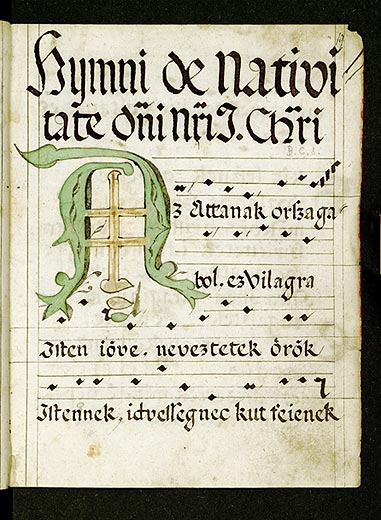 Hymni de Nativi
tate dñi Nr̃i J. Chr̃i
B.C.1.
Az Attanak orszaga
bol. ez Vilagra
Isten iöve. neveztetek örök
Istennek, idvessegnec kut feienek